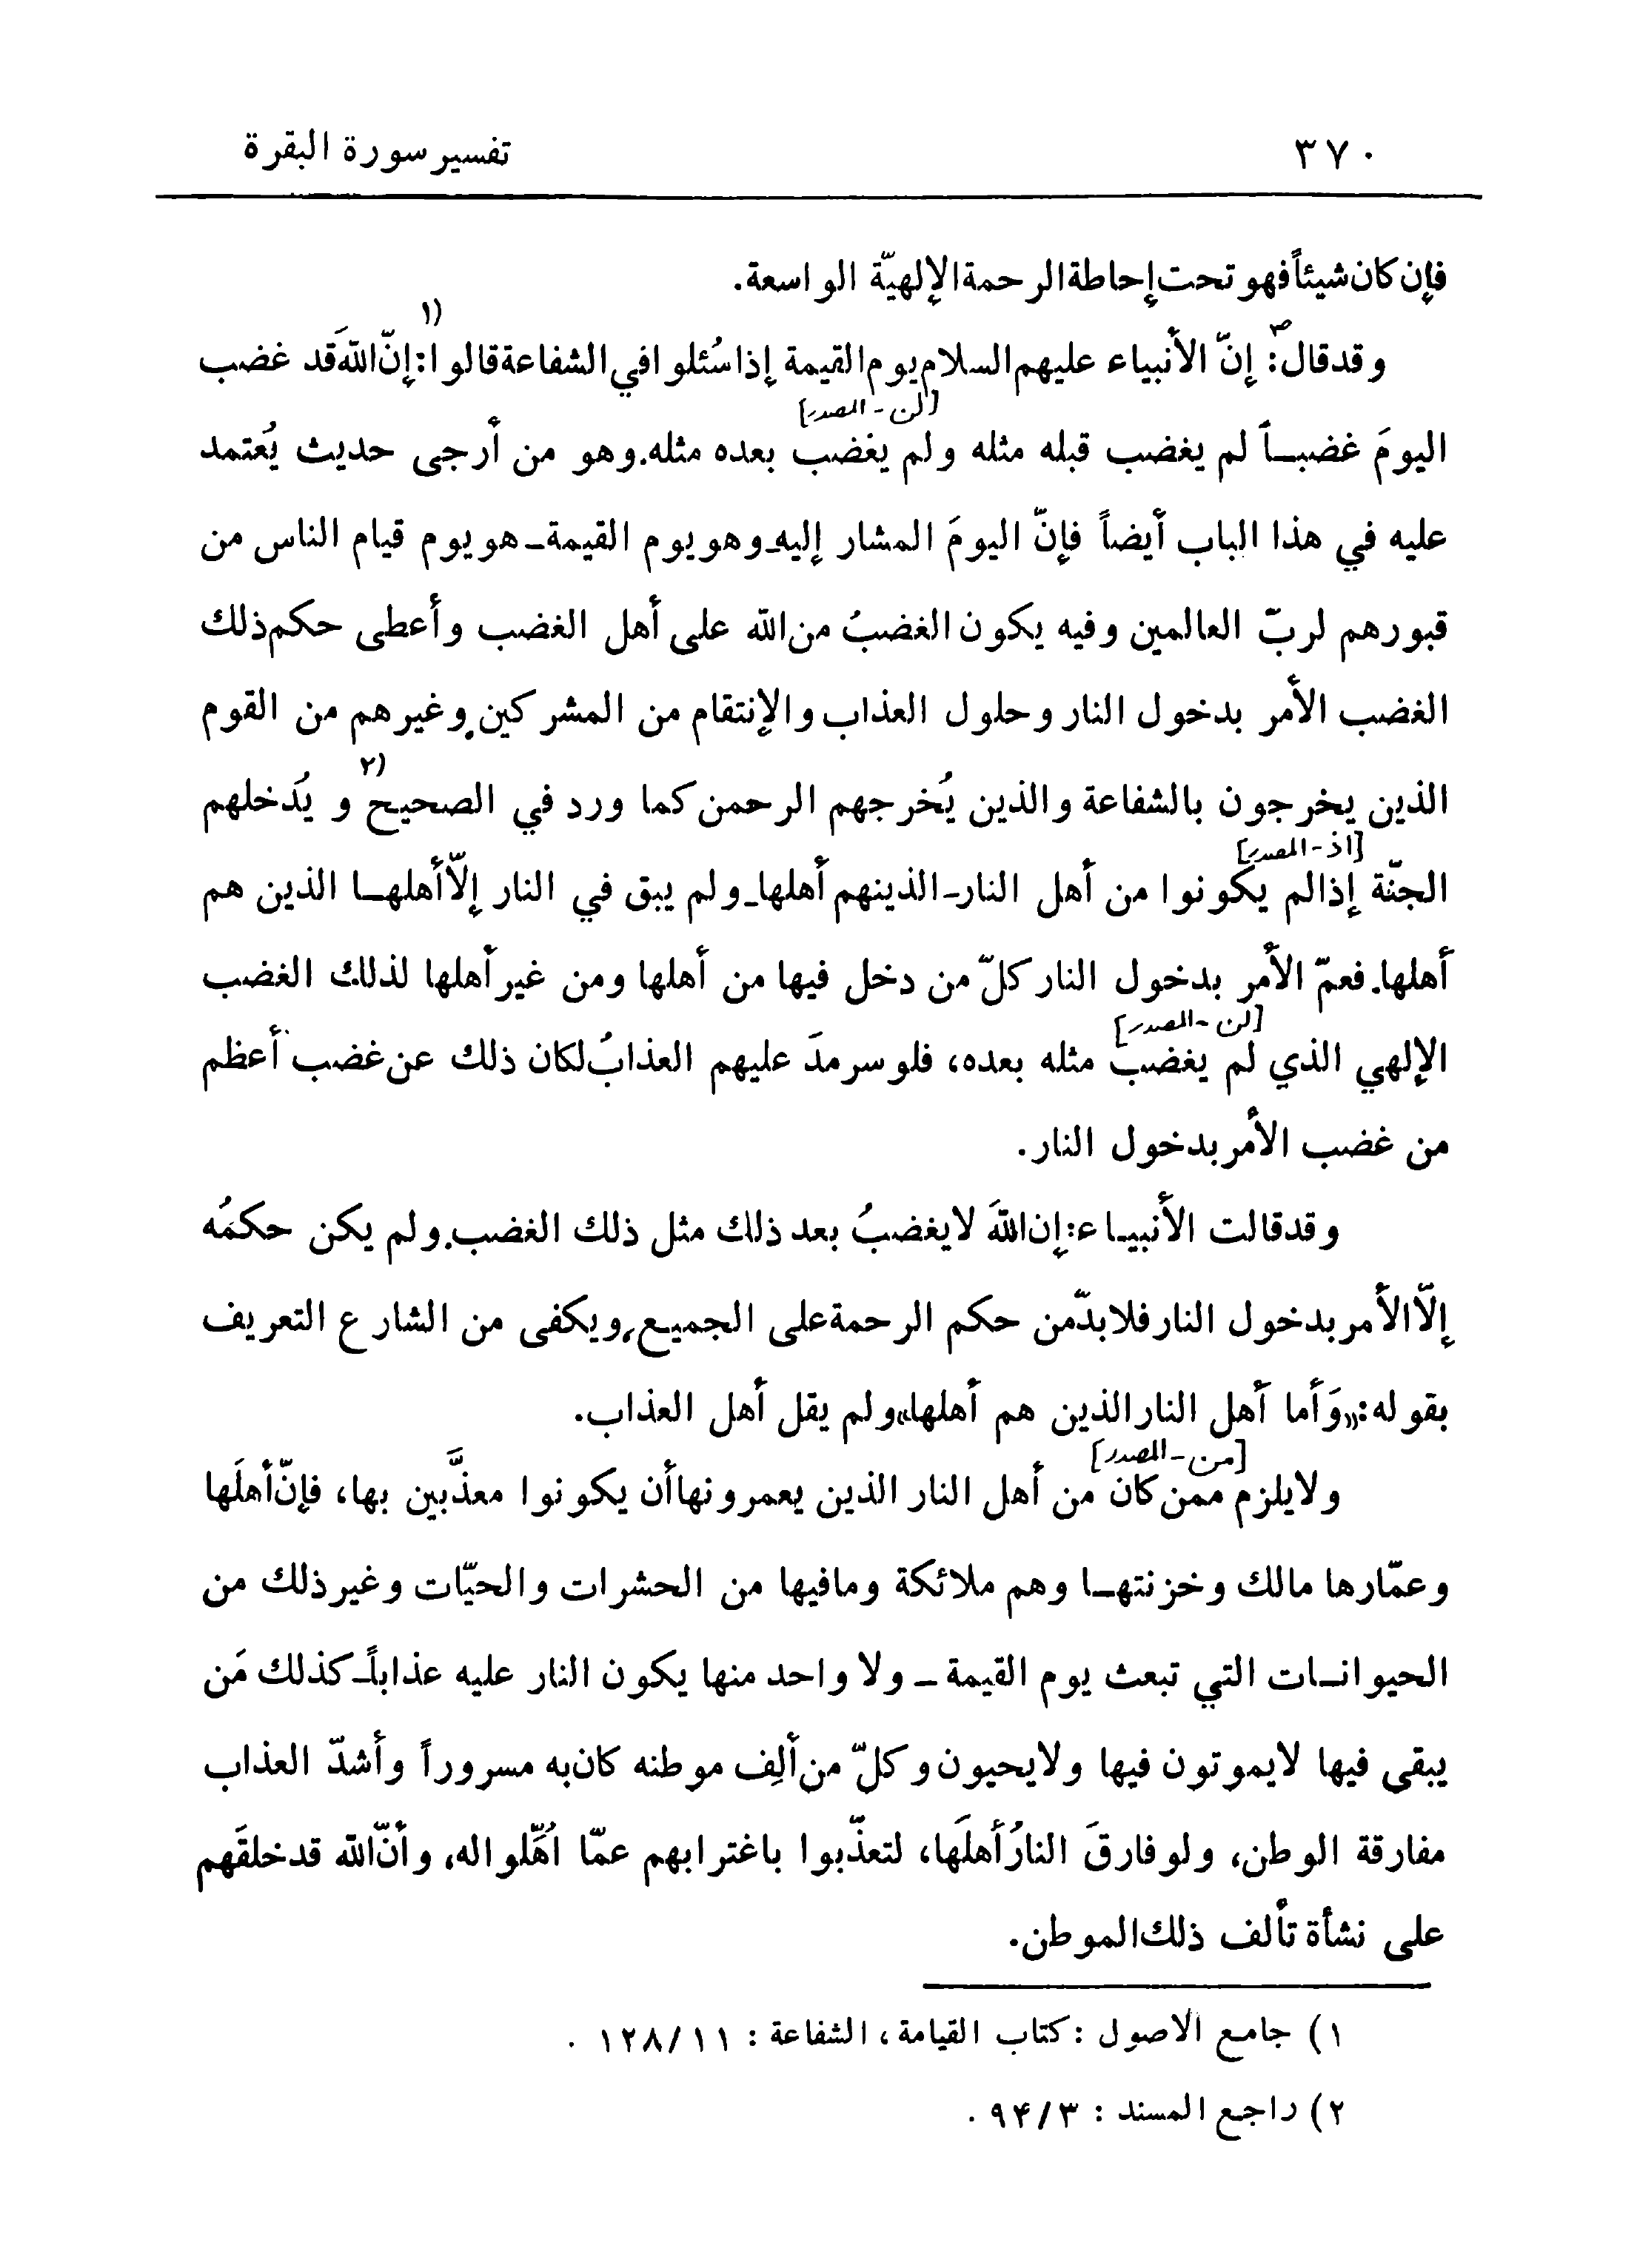 ٣٧٠ تفسير سورة البقرة
فإن كان شيئاً فهو تحت إحاطة الرحمة الإلهيّة الواسعة.
وقد قال ص: إنّ الأنبياء عليهم السلام يوم القيمة إذا سُئلوا في الشفاعة قالوا ١): إنّ اللهَ قد غضب
اليومَ غضبـاً لم يغضب قبله مثله ولم يغضب [لن - المصدر] بعده مثله. وهو من أرجى حديث يُعتمد
عليه في هذا الباب أيضاً فإنّ اليومَ المشار إليه ـ وهو يوم القيمة ـ هو يوم قيام الناس من
قبورهم لربّ العالمين وفيه يكون الغضبُ من الله على أهل الغضب وأعطى حكم ذلك
الغضب الأمر بدخول النار وحلول العذاب والإنتقام من المشركين وغيرهم من القوم
الذين يخرجون بالشفاعة والذين يُخرجهم الرحمن كما ورد في الصحيح ٢) و يُدخلهم
الجنّة إذا [اذ - المصدر] لم يكونوا من أهل النار ـ الذينهم أهلها ـ ولم يبق في النار إلّا أهلهـا الذين هم
أهلها. فعمّ الأمر بدخول النار كلّ من دخل فيها من أهلها ومن غير أهلها لذلك الغضب
الإلهي الذي لم يغضب [لن - المصدر] مثله بعده، فلو سرمدَ عليهم العذابُ لكان ذلك عن غضب أعظم
من غضب الأمر بدخول النار.
وقد قالت الأنبيـاء: إن اللهَ لا يغضبُ بعد ذلك مثل ذلك الغضب. ولم يكن حكمُه
إلّا الأمر بدخول النار فلابدّ من حكم الرحمة على الجميع، ويكفى من الشارع التعريف
بقوله: «وَأما أهل النار الذين هم أهلها» ولم يقل أهل العذاب.
ولا يلزم ممن [من - المصدر] كان من أهل النار الذين يعمرونها أن يكونوا معذَّبين بها، فإنّ أهلَها
وعمّارها مالك وخزنتهـا وهم ملائكة ومافيها من الحشرات والحيّات وغير ذلك من
الحيوانـات التي تبعث يوم القيمة ـ ولا واحد منها يكون النار عليه عذاباً ـ كذلك مَن
يبقى فيها لا يموتون فيها ولا يحيون وكلّ من ألِف موطنه كان به مسروراً وأشدّ العذاب
مفارقة الوطن، ولو فارقَ النارُ أهلَها، لتعذّبوا باغترابهم عمّا اُهّلوا له، وأنّ الله قد خلقَهم
على نشأة تألف ذلك الموطن.
١) جامع الاصول : كتاب القيامة ، الشفاعة : ١١/١٢٨ .
٢) راجع المسند : ٣/٩۴ .